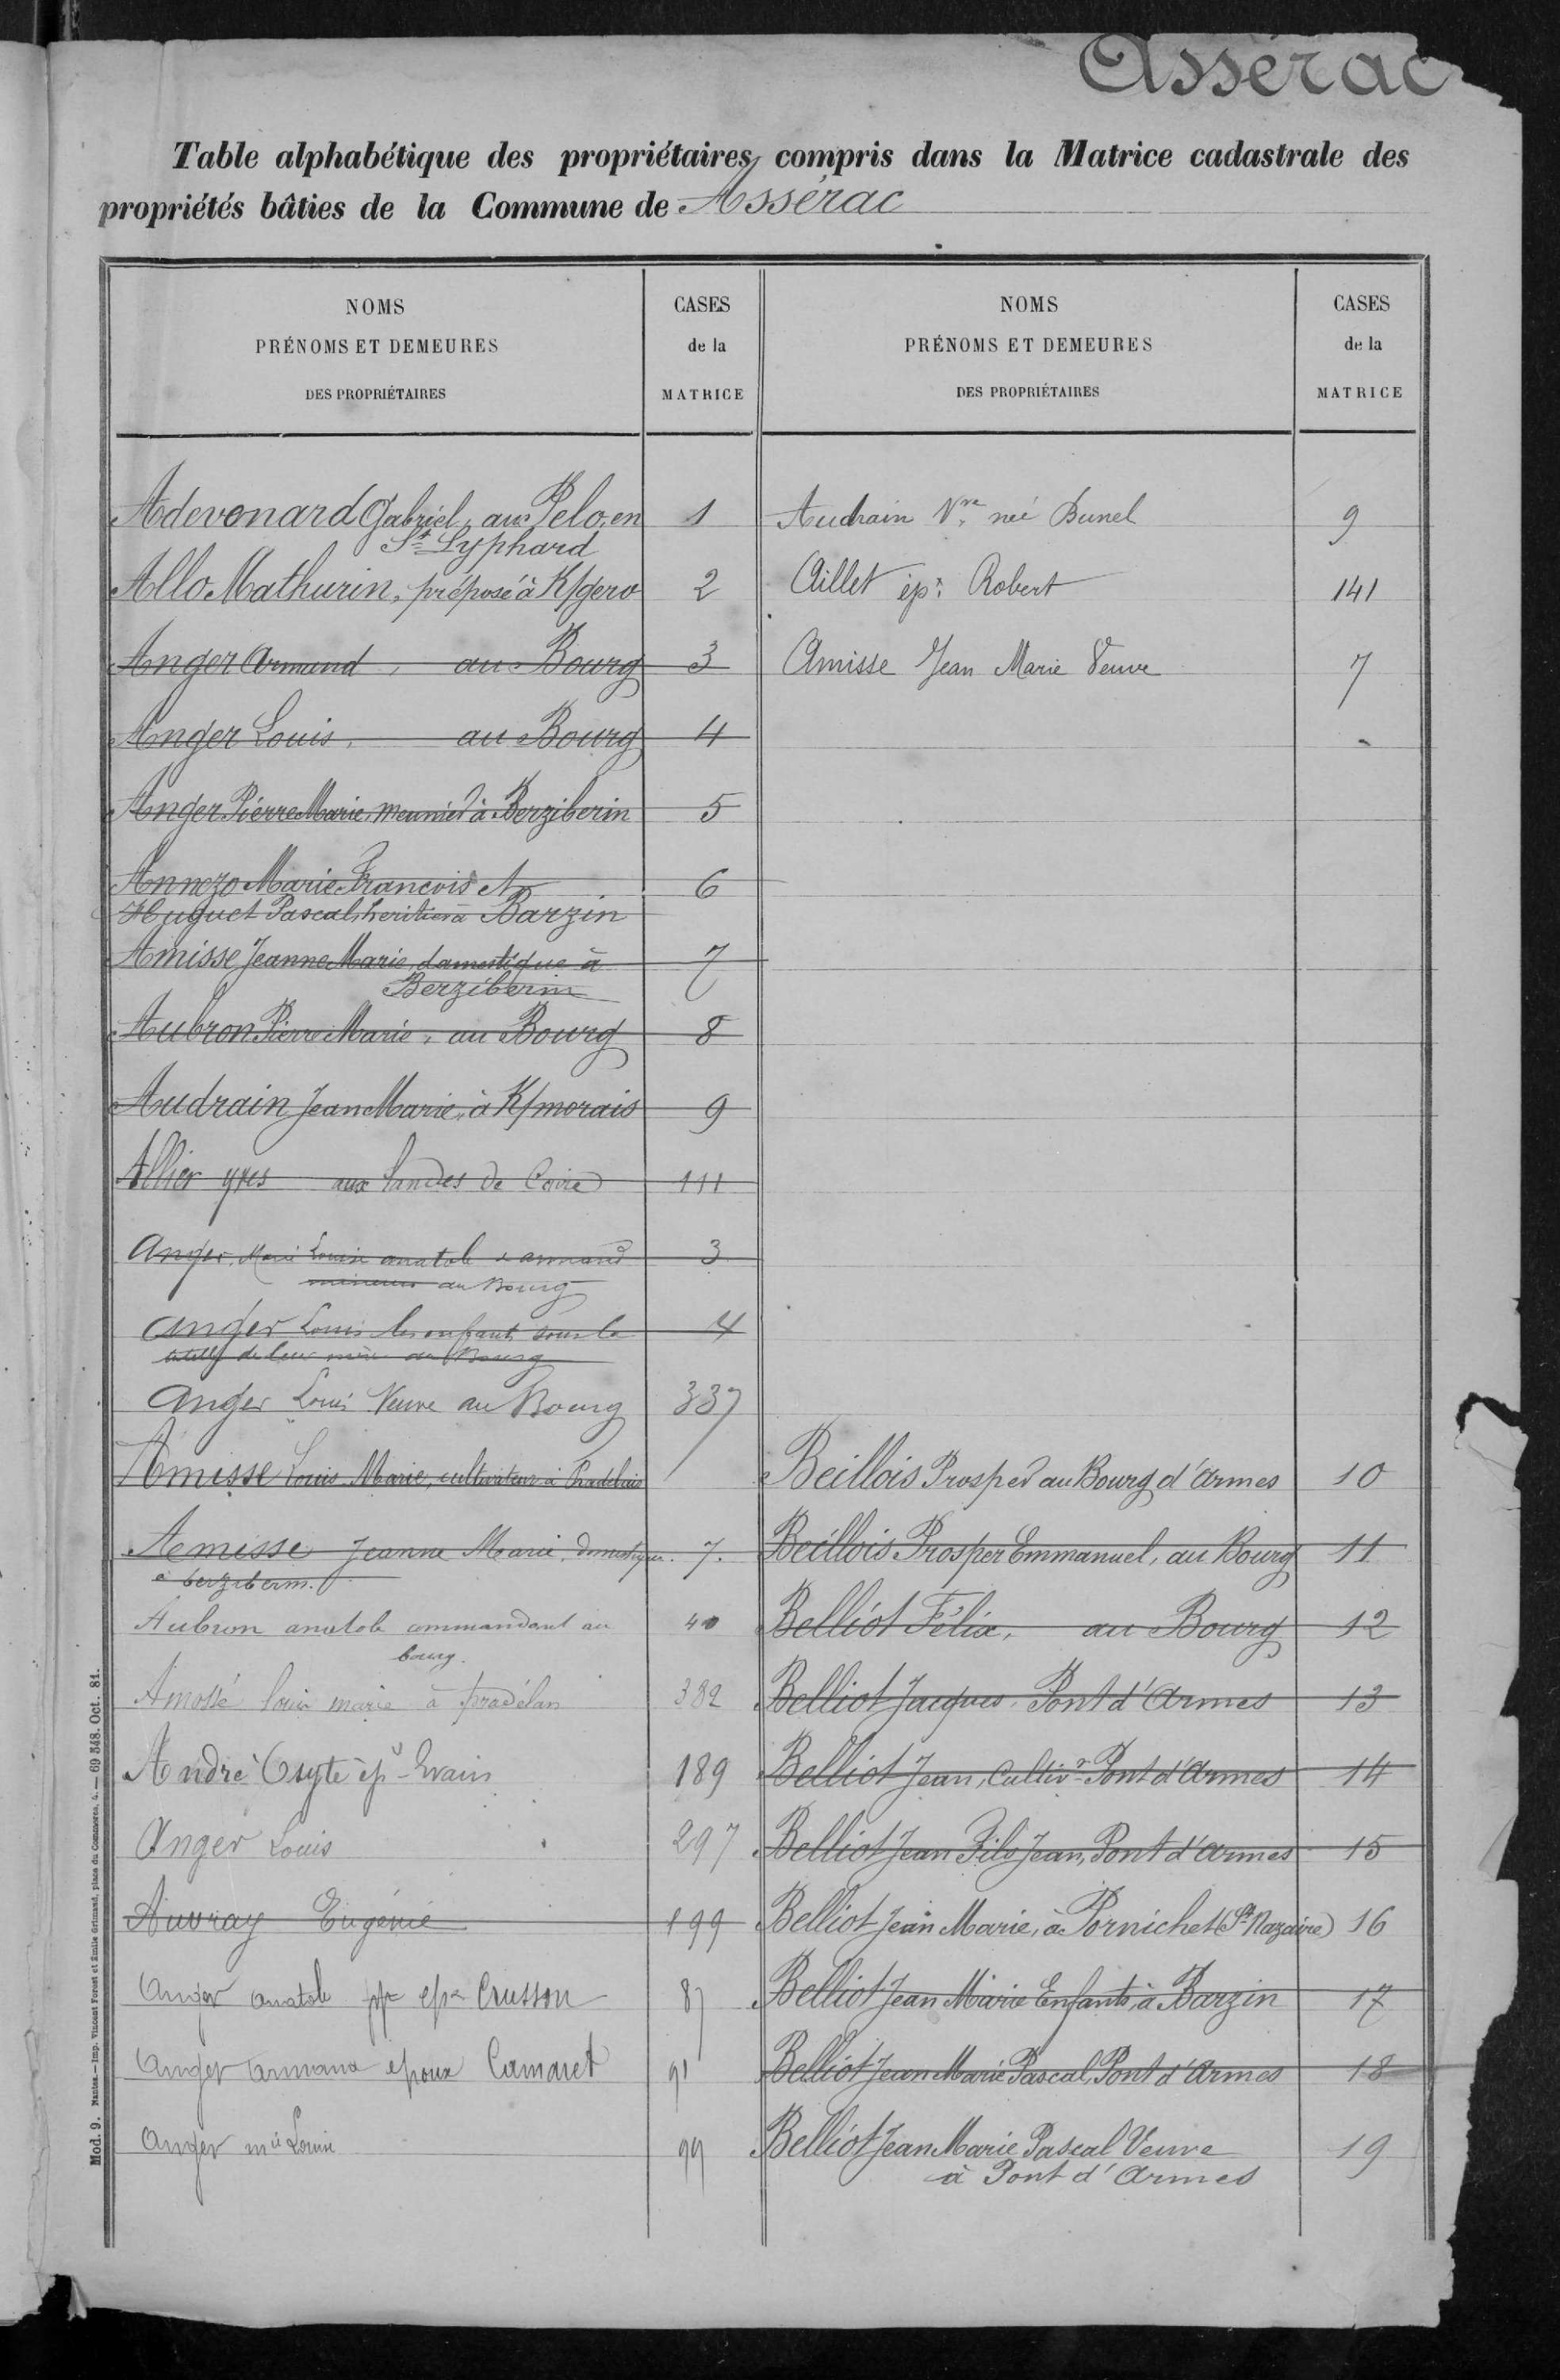 Assérac
Table alphabétique des propriétaires compris dans la Matrice cadastrale des
propriétés bâties de la Commune de Assérac
NOMS
PRÉNOMS ET DEMEURES
DES PROPRIÉTAIRES
CASES
de la
MATRICE
Adevonard Gabriel, au Pelo, en 1
St Lyphard
Allo Mathurin, préposé à K/gero 2
Anger Armand, au Bourg 3
Anger Louis, au Bourg 4
Anger Pierre Marie, meunier à Berziberin 5
Annezo Marie Francois et 6
Huguet Pascal, heritiers à Barzin
Amisse Jeanne Marie, domestique à 7
Berziberin
Aubron Pierre Marie, au Bourg 8
Audrain Jean Marie, à K/morais 9
Allier yves aux landes de Coire 111
Anger, Marie Louise anatole & armand 3
mineurs au Bourg
Anger Louis les enfants sous la 4
tutelle de leur mère au Bourg
Anger Louis Veuve au Bourg 337
Amisse Louis Marie, cultivateur à
Amisse Jeanne Marie, domestique 7.
à berziberin.
Aubron anatole commandant au 40
bourg.
Amossé louis marie à pradélan 382
André Osyte ép Evain 189
Anger Louis 297
Auvray Eugénie 199
Anger anatole epx Crusson 87
Anger armand epoux Camaret 91
Anger mie Louise 99
NOMS
PRÉNOMS ET DEMEURES
DES PROPRIÉTAIRES
CASES
de la
MATRICE
Audrain Vve née Bunel 9
Aillet épx Robert 141
Amisse Jean Marie Veuve 7
Beillois Prosper au Bourg d'Armes 10
Beillois Prosper Emmanuel, au Bourg 11
Belliot Félix, au Bourg 12
Belliot Jacques, Pont d'Armes 13
Belliot Jean, Cultivr Pont d'Armes 14
Belliot Jean Fils Jean, Pont d'armes 15
Belliot Jean Marie, à Pornichet (St Nazaire) 16
Belliot Jean Marie Enfants, à Barzin 17
Belliot Jean Marie Pascal, Pont d'Armes 18
Belliot Jean Marie Pascal Veuve 19
à Pont d'Armes
Mod. 9. Nantes.—Imp. Vincent Forest et Emile Grimaud, place du Commerce, 4.—69 348. Oct. 81.